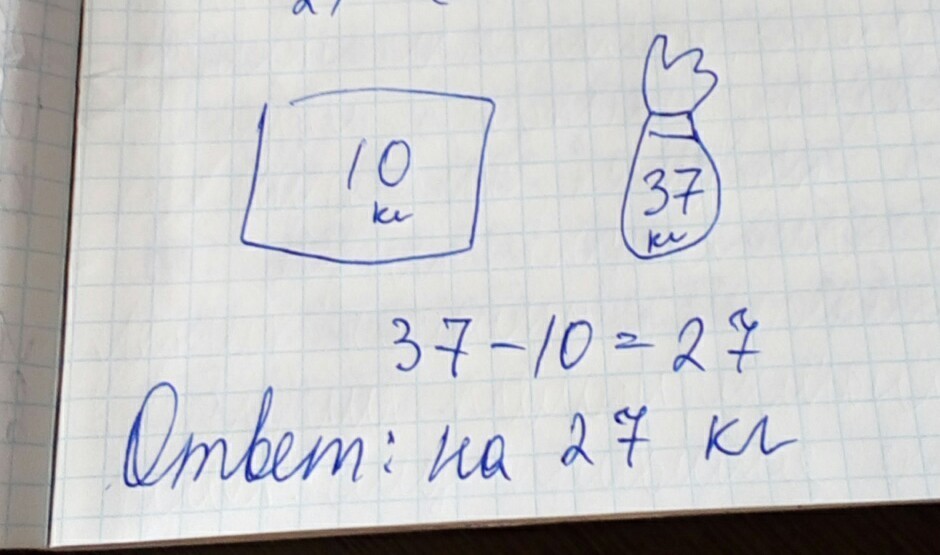 10
кг
37
кг
37-10=27
Ответ: на 27 кг